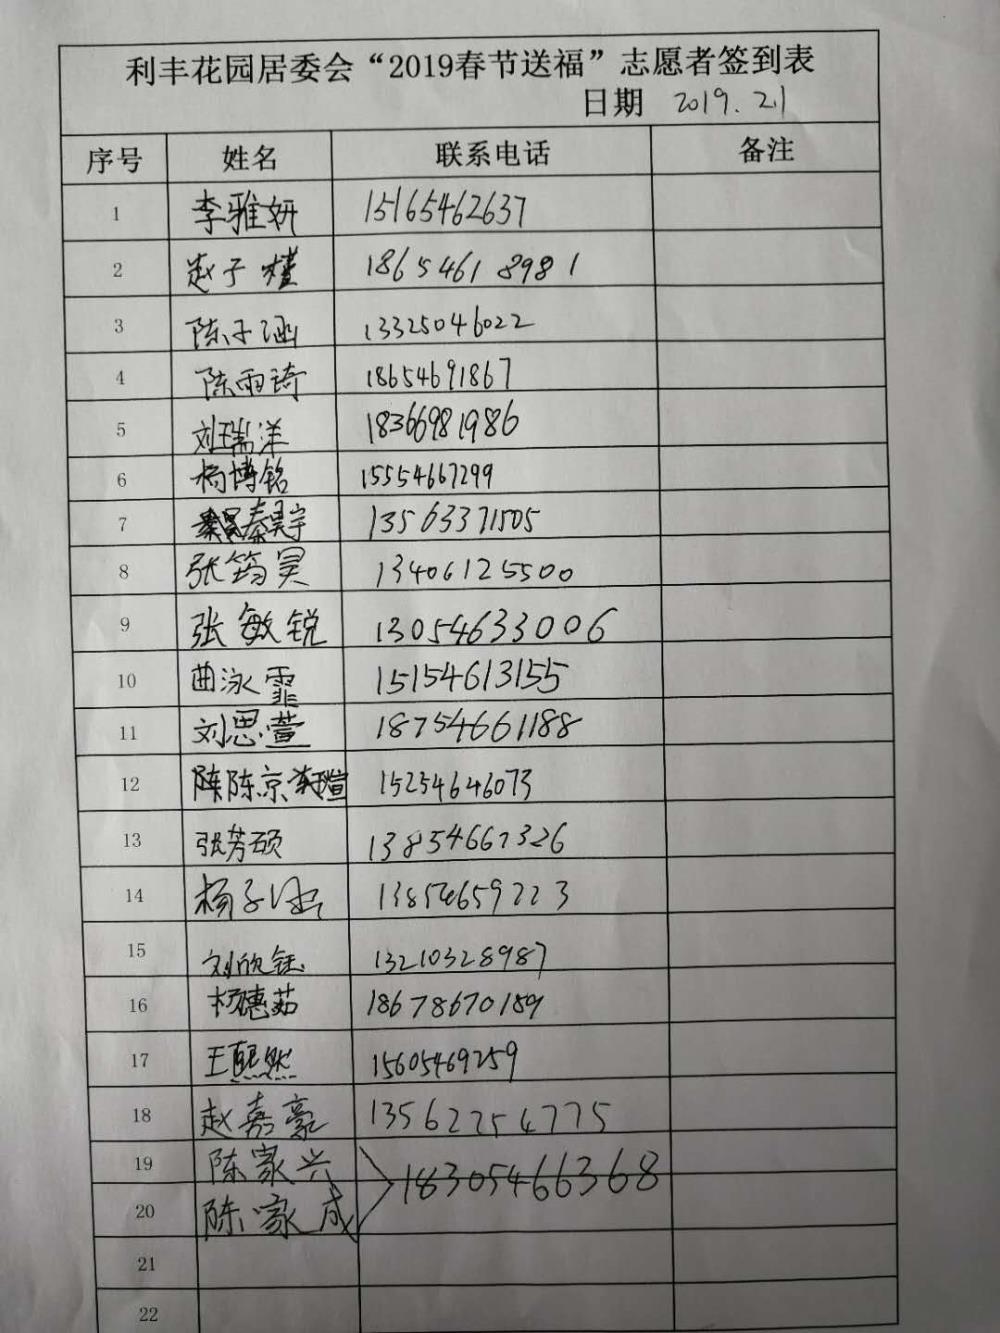 利丰花园居委会“2019春节送福”志愿者签到表
日期 2019.2.1
序号 姓名 联系电话 备注
1 李雅妍 15165462637
2 赵子槿 18654618981
3 陈子涵 13325046022
4 陈雨琦 18654691867
5 刘瑞洋 18366981986
6 杨博铭 15554667299
7 秦昊宇 13563371505
8 张筠昊 13406125500
9 张敏锐 13054633006
10 曲泳霏 15154613155
11 刘思萱 18754661188
12 陈京 15254646073
13 张芳硕 13854667326
14 杨子涵 13854659223
15 刘欣钰 13210328987
16 杨穗茹 18678670189
17 王熙然 15605469259
18 赵嘉豪 13562254775
19 陈家兴
18305466368
20 陈家成
21
22